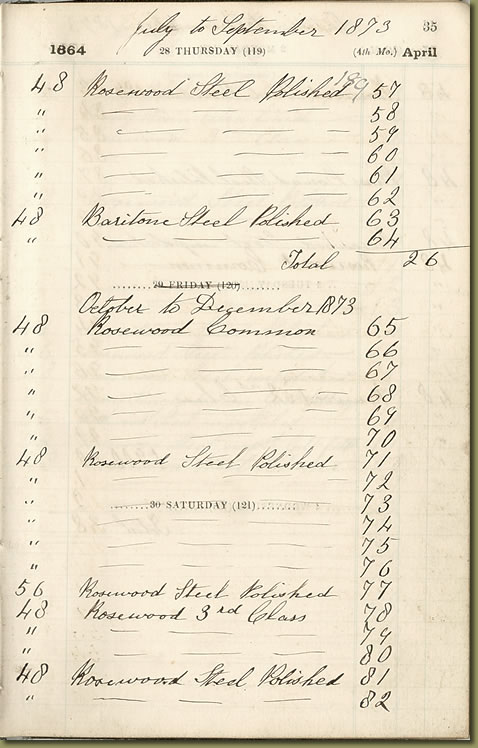 July to September 1873 35
1864 28 THURSDAY (119) (4th Mo.) April
48 Rosewood Steel Polished 189 57
" — — — 58
" — — — 59
" — — — 60
" — — — 61
" — — — 62
48 Baritone Steel Polished 63
" — — — 64
Total 26
29 FRIDAY (120)
October to December 1873
48 Rosewood Common 65
" — — 66
" — — 67
" — — 68
" — — 69
" — — 70
48 Rosewood Steel Polished 71
" — — — 72
" 30 SATURDAY (121) 73
" — — — 74
" — — — 75
" — — — 76
56 Rosewood Steel Polished 77
48 Rosewood 3rd Class 78
" — — — 79
" — — — 80
48 Rosewood Steel Polished 81
" — — — 82